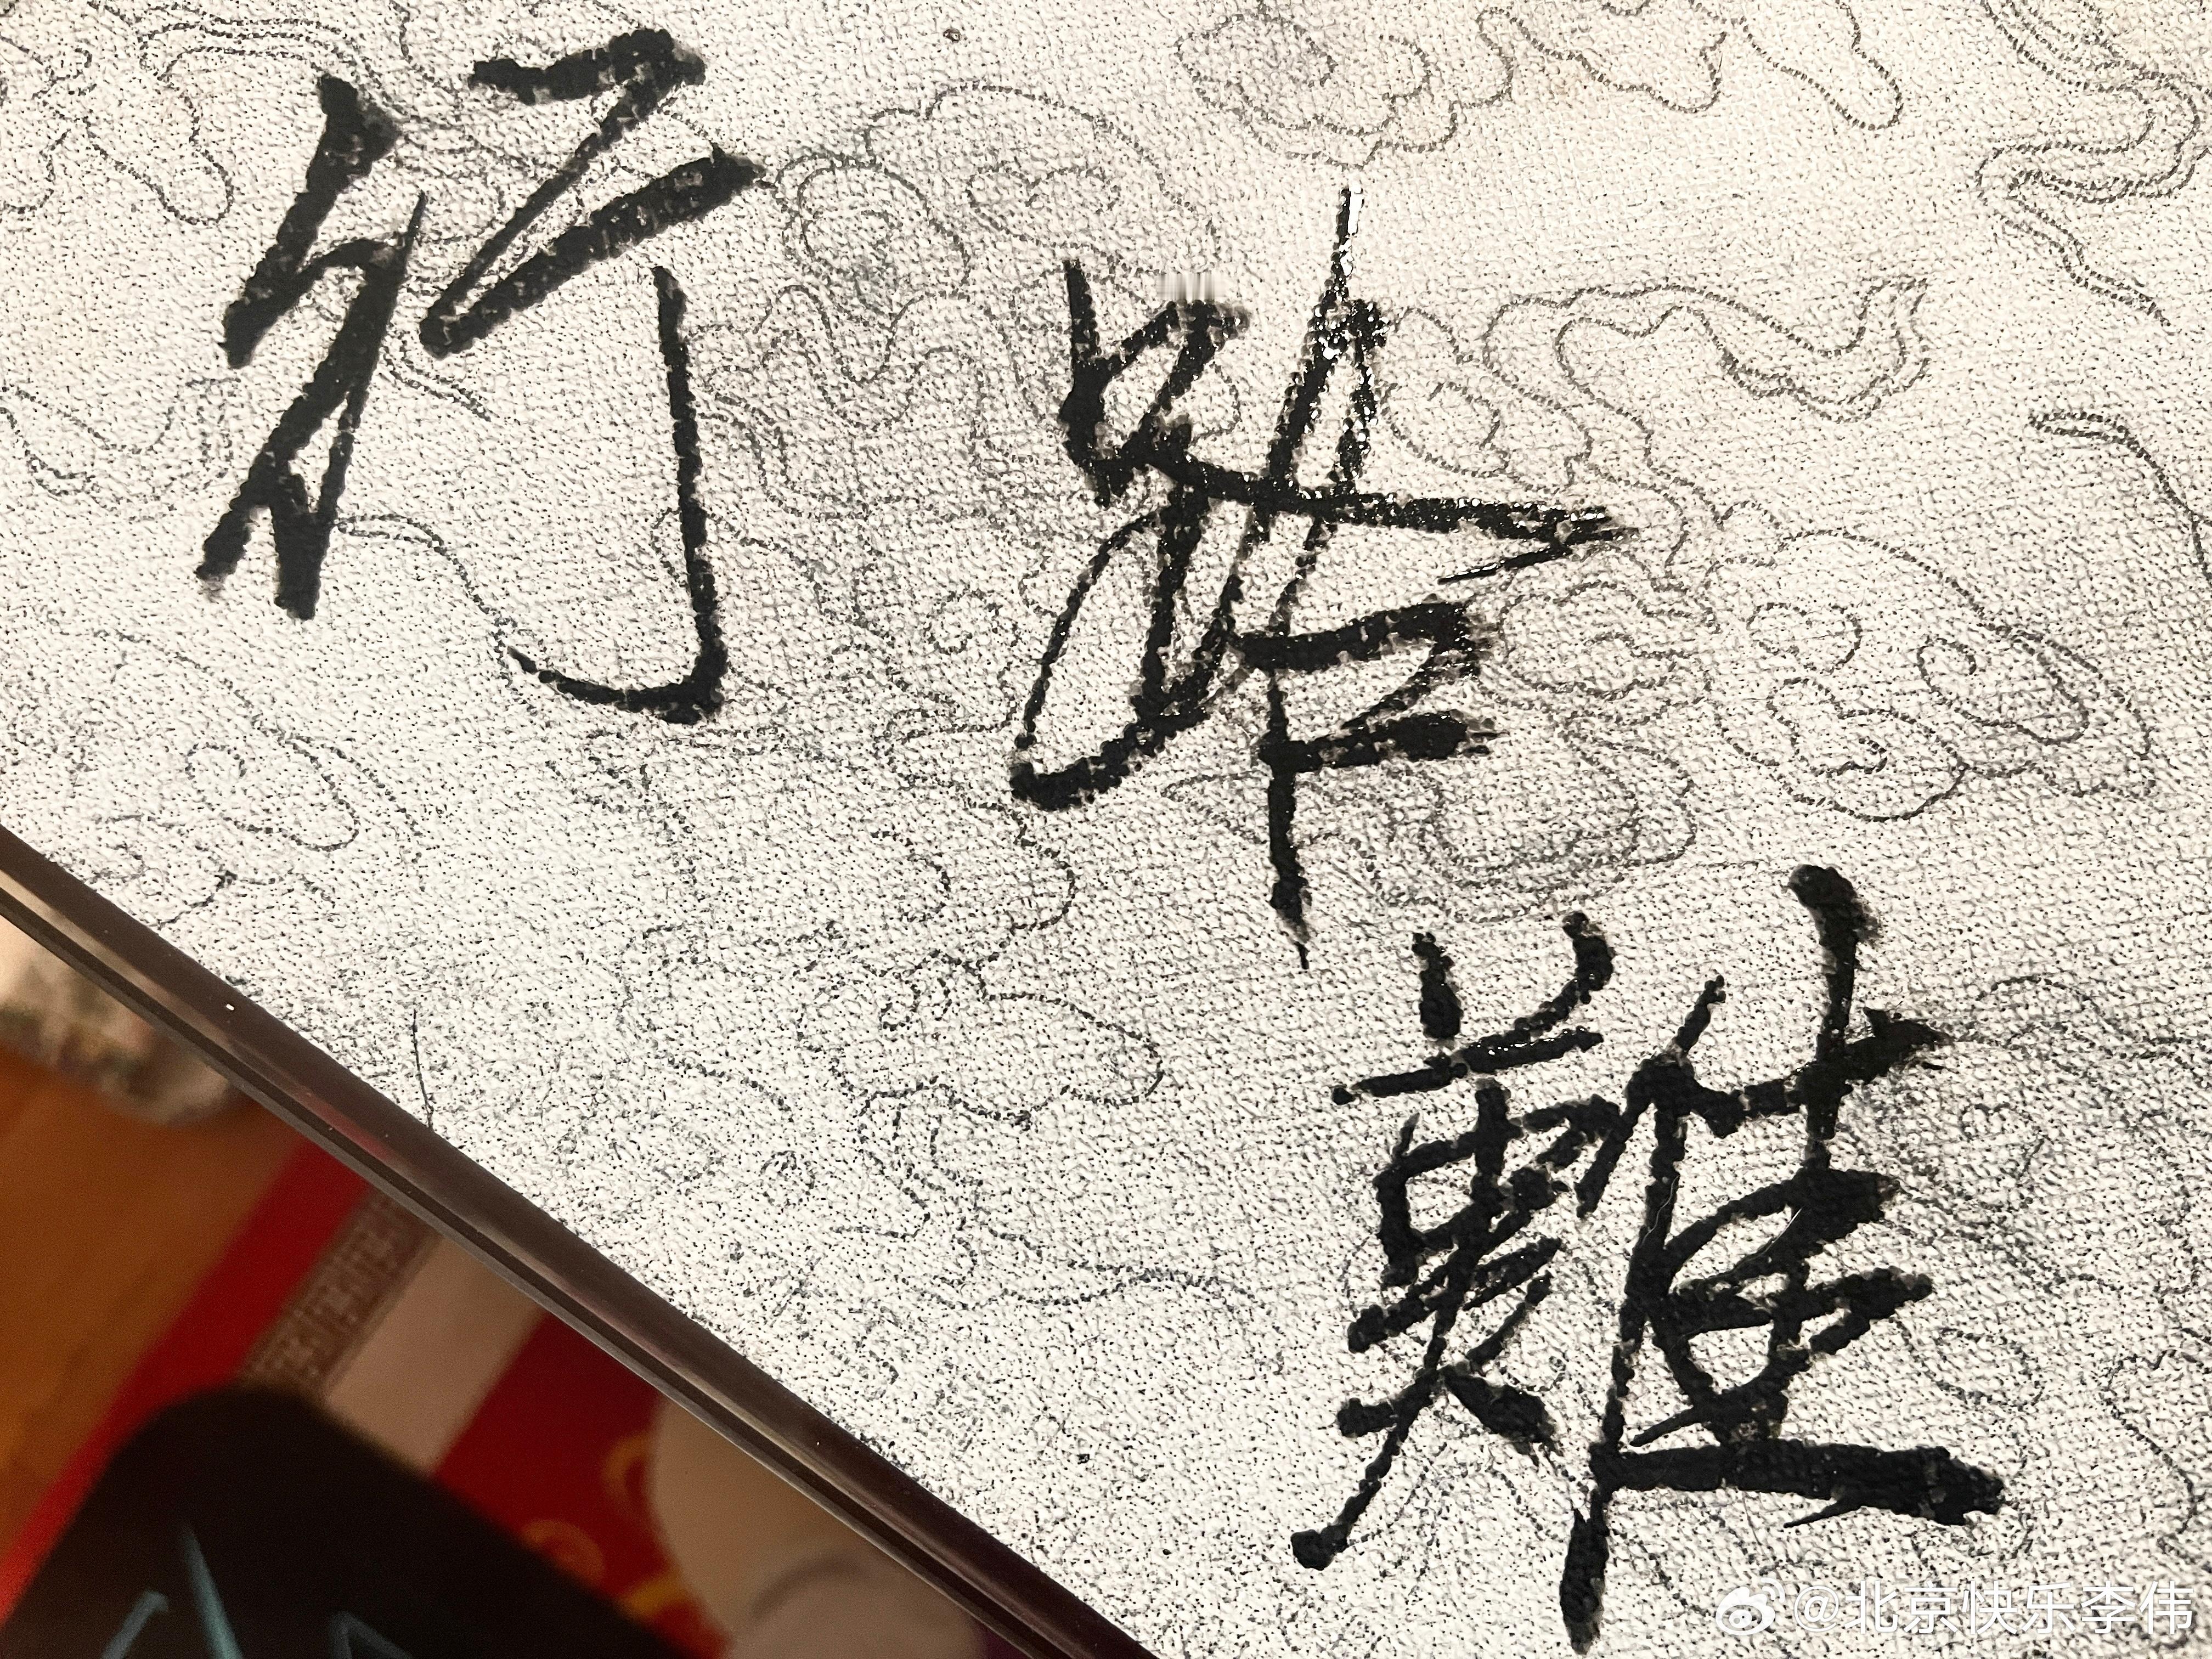 行路難
@北京快乐李伟